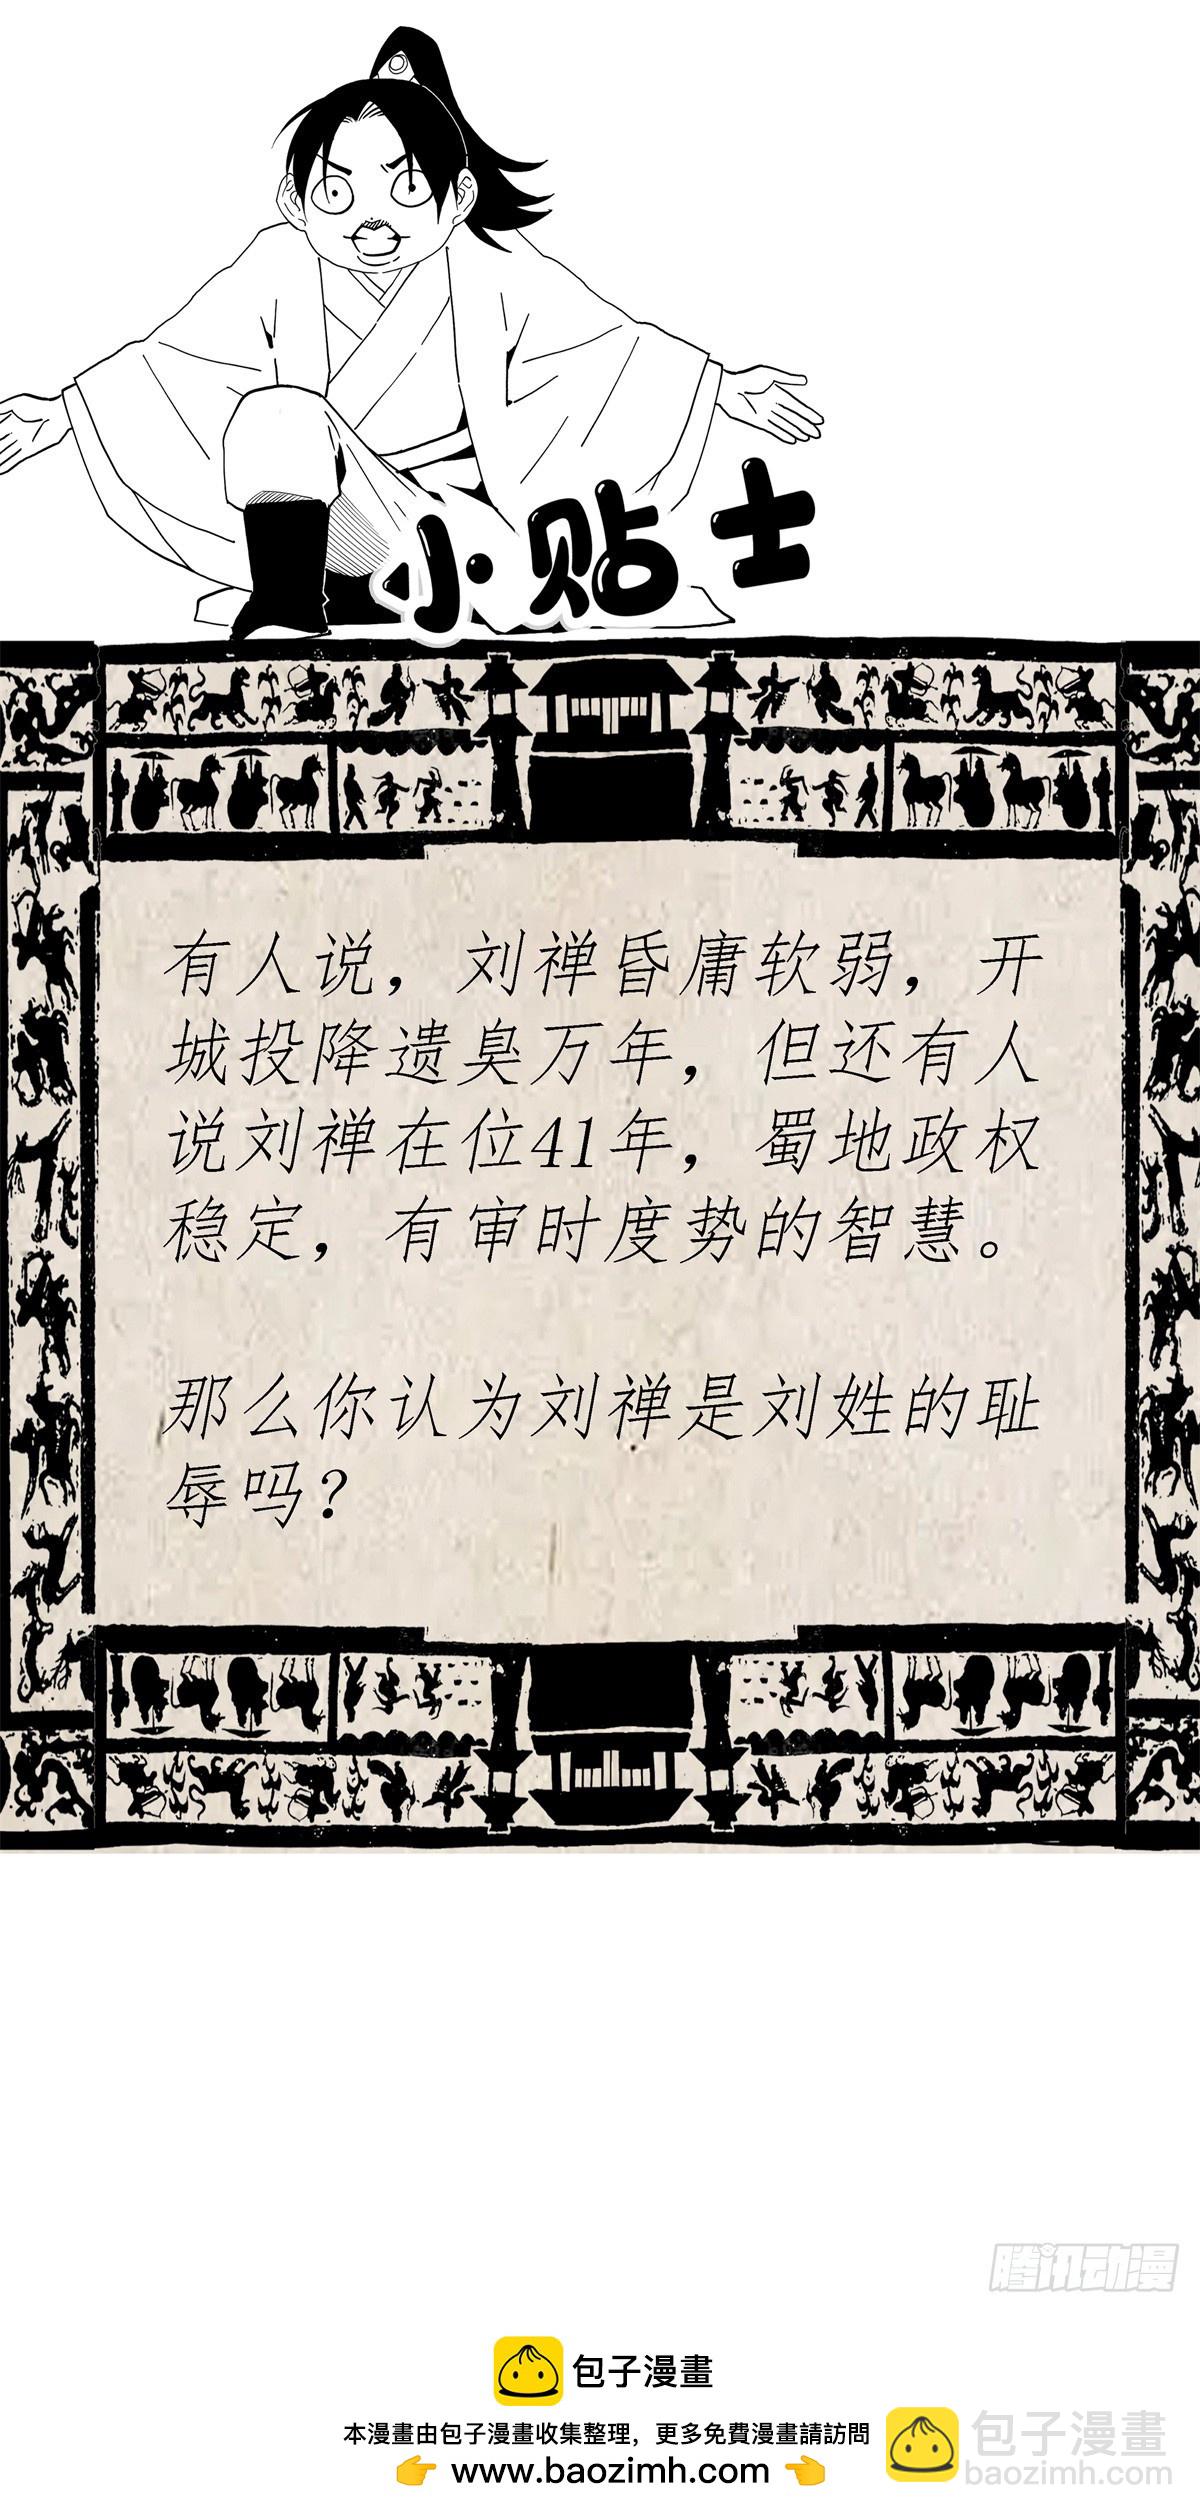 小贴士
有人说，刘禅昏庸软弱，开
城投降遗臭万年，但还有人
说刘禅在位41年，蜀地政权
稳定，有审时度势的智慧。
那么你认为刘禅是刘姓的耻
辱吗？
腾讯动漫
包子漫畫
本漫畫由包子漫畫收集整理，更多免費漫畫請訪問
👉 www.baozimh.com 👈
包子漫畫
baozimh.com